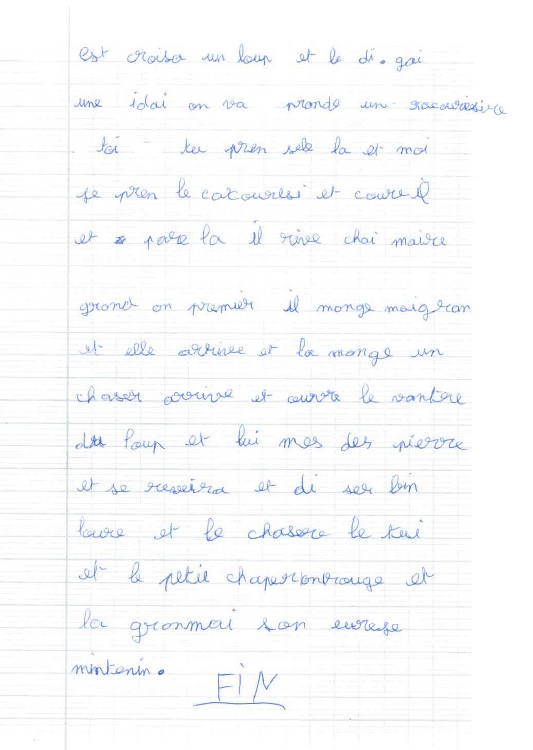 est croisa un loup et le di. gai
une idai on va pronde un
toi tu pren sele la et moi
je pren le cacouresi et coure il
et pare la il rive chai maire
grond on premier il monge maigran
et elle arrivee et la monge un
chaser arrive et ouvre le vantre
du loup et lui mes des pierre
et se reveira et di ser bin
loure et le chasere le tui
et le petit chaperontrouge et
la gronmai son eurese
mintenin.
FiN